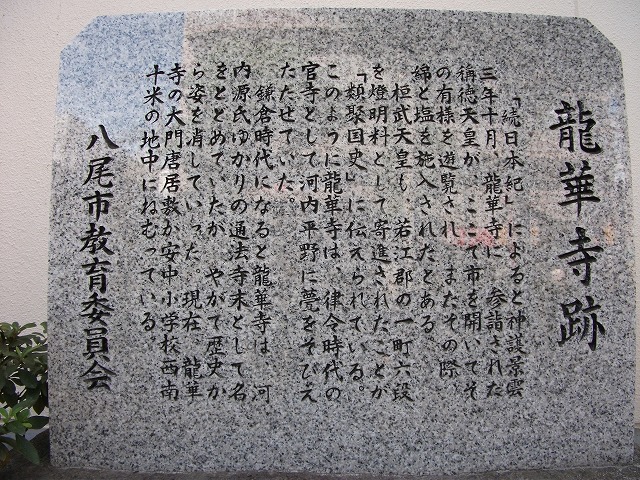 龍華寺跡
「続日本紀」によると神護景雲
三年十月、龍華寺に 参詣された
称徳天皇が、ここで市を開いてそ
の有様を遊覧され、またその際
綿と塩を施入されたとある。
桓武天皇も、若江郡の一町六段
を燈明料として寄進されたことが
「類聚国史」に伝えられている。
このように龍華寺は、律令時代の
官寺として河内平野に甍をそびえ
たたせていた。
鎌倉時代になると龍華寺は、河
内源氏ゆかりの通法寺末として名
をとどめていたが、やがて歴史か
ら姿を消していった。現在、龍華
寺の大門唐居敷が安中小学校西南
十米の地中にねむっている。
八尾市教育委員会